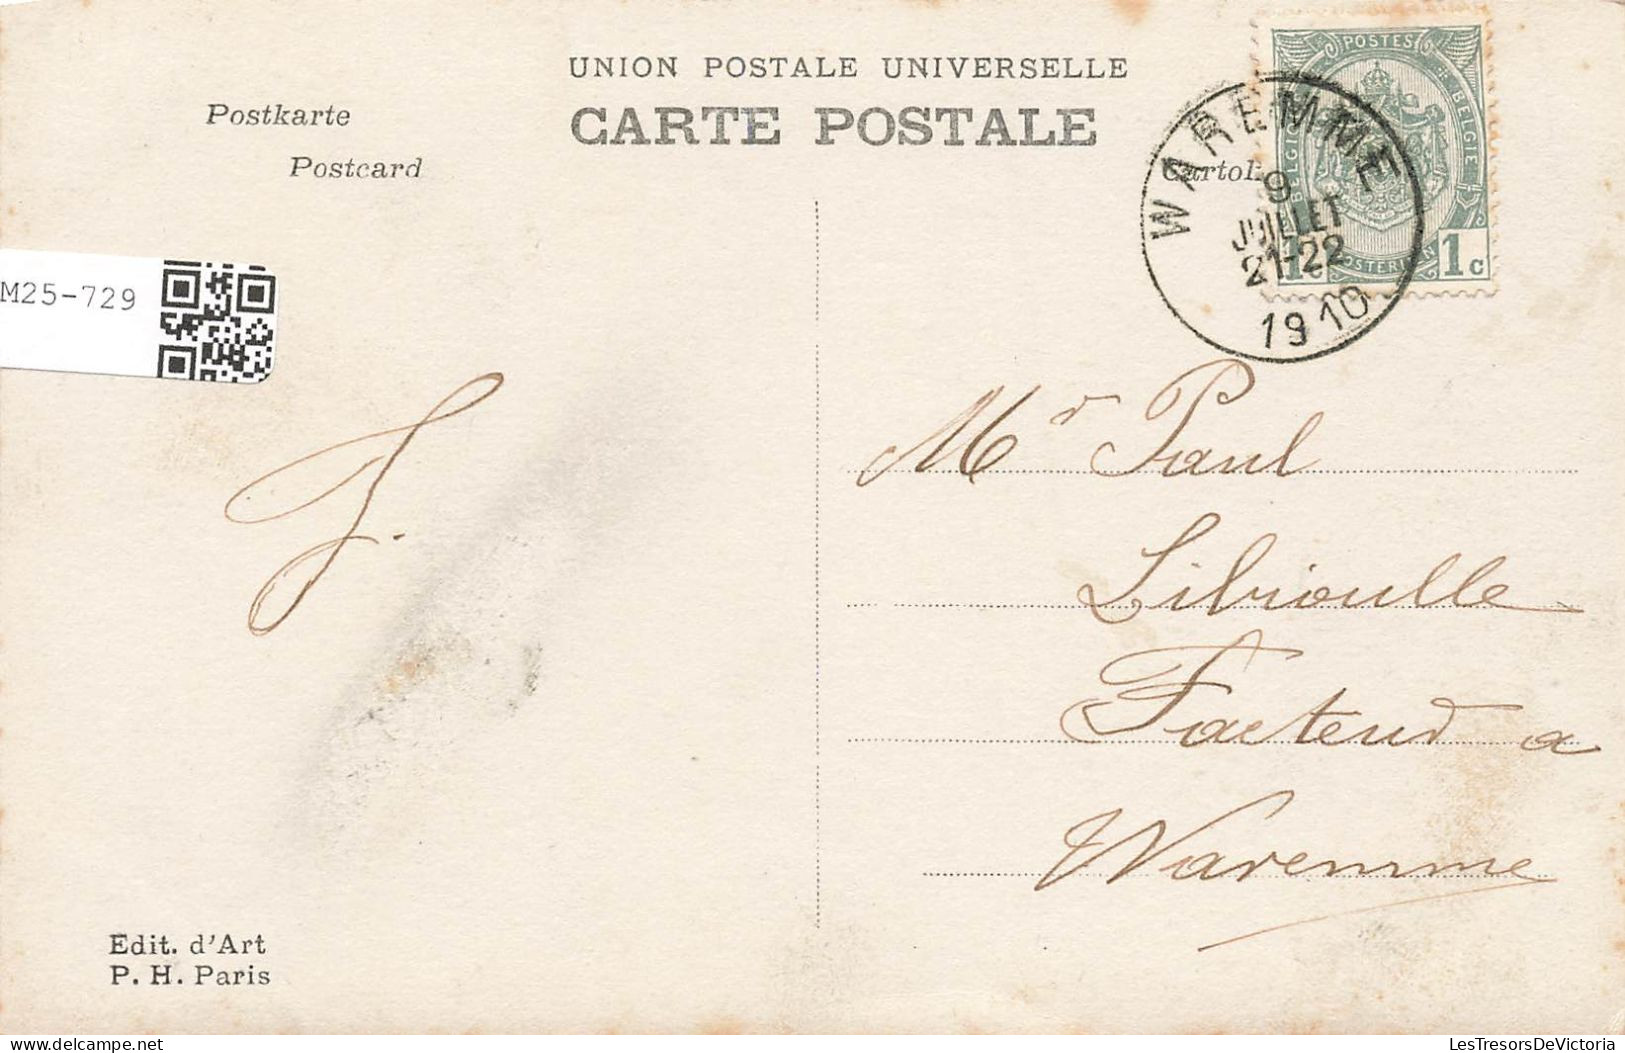 UNION POSTALE UNIVERSELLE
CARTE POSTALE
Postkarte
Postcard
Cartol
POSTES
BELGIQUE BELGIE
1c 1c
WAREMME
9
JUILLET
21-22
1910
M25-729
J.
Mr Paul
Libioulle
Facteur a
Waremme
Edit. d'Art
P. H. Paris
delcampe.net
LesTresorsDeVictoria